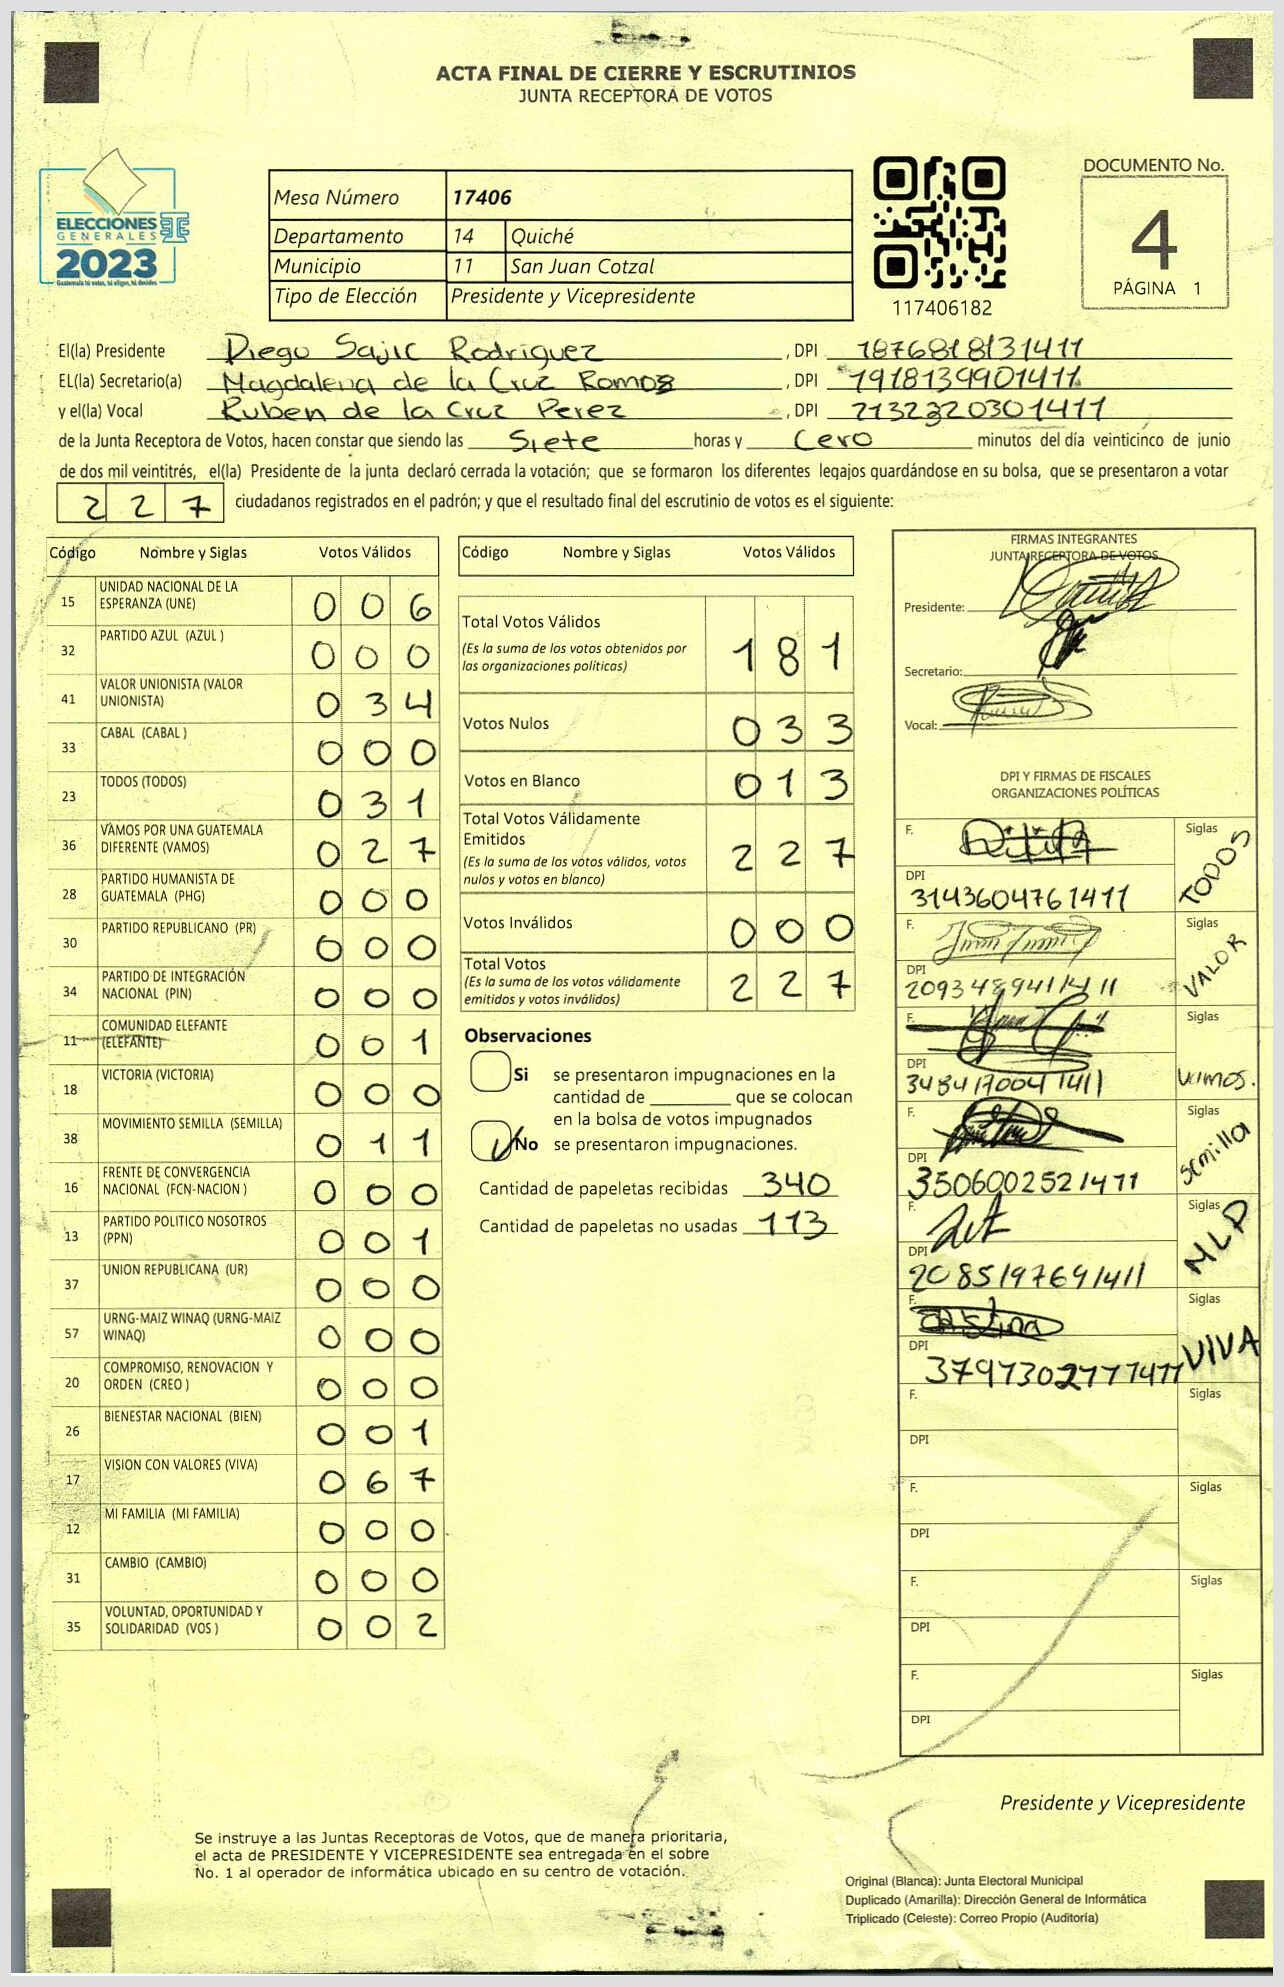 ACTA FINAL DE CIERRE Y ESCRUTINIOS
JUNTA RECEPTORA DE VOTOS
ELECCIONES
GENERALES
2023
Guatemala tú votas, tú eliges, tú decides
Mesa Número 17406
Departamento 14 Quiché
Municipio 11 San Juan Cotzal
Tipo de Elección Presidente y Vicepresidente
117406182
DOCUMENTO No.
4
PÁGINA 1
El(la) Presidente Diego Sajic Rodriguez , DPI 1876818131411
EL(la) Secretario(a) Magdalena de la Cruz Ramos , DPI 1918139901411
y el(la) Vocal Ruben de la Cruz Perez , DPI 2132320301411
de la Junta Receptora de Votos, hacen constar que siendo las Siete horas y Cero minutos del día veinticinco de junio
de dos mil veintitrés, el(la) Presidente de la junta declaró cerrada la votación; que se formaron los diferentes legajos guardándose en su bolsa, que se presentaron a votar
227 ciudadanos registrados en el padrón; y que el resultado final del escrutinio de votos es el siguiente:
Código Nombre y Siglas Votos Válidos
15 UNIDAD NACIONAL DE LA
ESPERANZA (UNE) 006
32 PARTIDO AZUL (AZUL ) 000
41 VALOR UNIONISTA (VALOR
UNIONISTA) 034
33 CABAL (CABAL ) 000
23 TODOS (TODOS) 031
36 VAMOS POR UNA GUATEMALA
DIFERENTE (VAMOS) 027
28 PARTIDO HUMANISTA DE
GUATEMALA (PHG) 000
30 PARTIDO REPUBLICANO (PR) 000
34 PARTIDO DE INTEGRACIÓN
NACIONAL (PIN) 000
11 COMUNIDAD ELEFANTE
(ELEFANTE) 001
18 VICTORIA (VICTORIA) 000
38 MOVIMIENTO SEMILLA (SEMILLA) 011
16 FRENTE DE CONVERGENCIA
NACIONAL (FCN-NACION ) 000
13 PARTIDO POLITICO NOSOTROS
(PPN) 001
37 UNION REPUBLICANA (UR) 000
57 URNG-MAIZ WINAQ (URNG-MAIZ
WINAQ) 000
20 COMPROMISO, RENOVACION Y
ORDEN (CREO ) 000
26 BIENESTAR NACIONAL (BIEN) 001
17 VISION CON VALORES (VIVA) 067
12 MI FAMILIA (MI FAMILIA) 000
31 CAMBIO (CAMBIO) 000
35 VOLUNTAD, OPORTUNIDAD Y
SOLIDARIDAD (VOS ) 002
Código Nombre y Siglas Votos Válidos
Total Votos Válidos
(Es la suma de los votos obtenidos por
las organizaciones politicas) 181
Votos Nulos 033
Votos en Blanco 013
Total Votos Válidamente
Emitidos
(Es la suma de los votos válidos, votos
nulos y votos en blanco) 227
Votos Inválidos 000
Total Votos
(Es la suma de los votos válidamente
emitidos y votos inválidos) 227
Observaciones
Si se presentaron impugnaciones en la
cantidad de ________ que se colocan
en la bolsa de votos impugnados
No se presentaron impugnaciones.
Cantidad de papeletas recibidas 340
Cantidad de papeletas no usadas 113
FIRMAS INTEGRANTES
JUNTA RECEPTORA DE VOTOS
Presidente:
Secretario:
Vocal:
DPI Y FIRMAS DE FISCALES
ORGANIZACIONES POLÍTICAS
F. Siglas
TODOS
DPI
3143604761411
F. Siglas
VALOR
DPI
2093489411411
F. Siglas
DPI
3484170041411 vamos.
F. Siglas
semilla
DPI
3506002521411
F. Siglas
MLP
DPI
2085197691411
F. Siglas
DPI VIVA
3797302771411
F. Siglas
DPI
F. Siglas
DPI
F. Siglas
DPI
F. Siglas
DPI
Presidente y Vicepresidente
Se instruye a las Juntas Receptoras de Votos, que de manera prioritaria,
el acta de PRESIDENTE Y VICEPRESIDENTE sea entregada en el sobre
No. 1 al operador de informática ubicado en su centro de votación.
Original (Blanca): Junta Electoral Municipal
Duplicado (Amarilla): Dirección General de Informática
Triplicado (Celeste): Correo Propio (Auditoría)